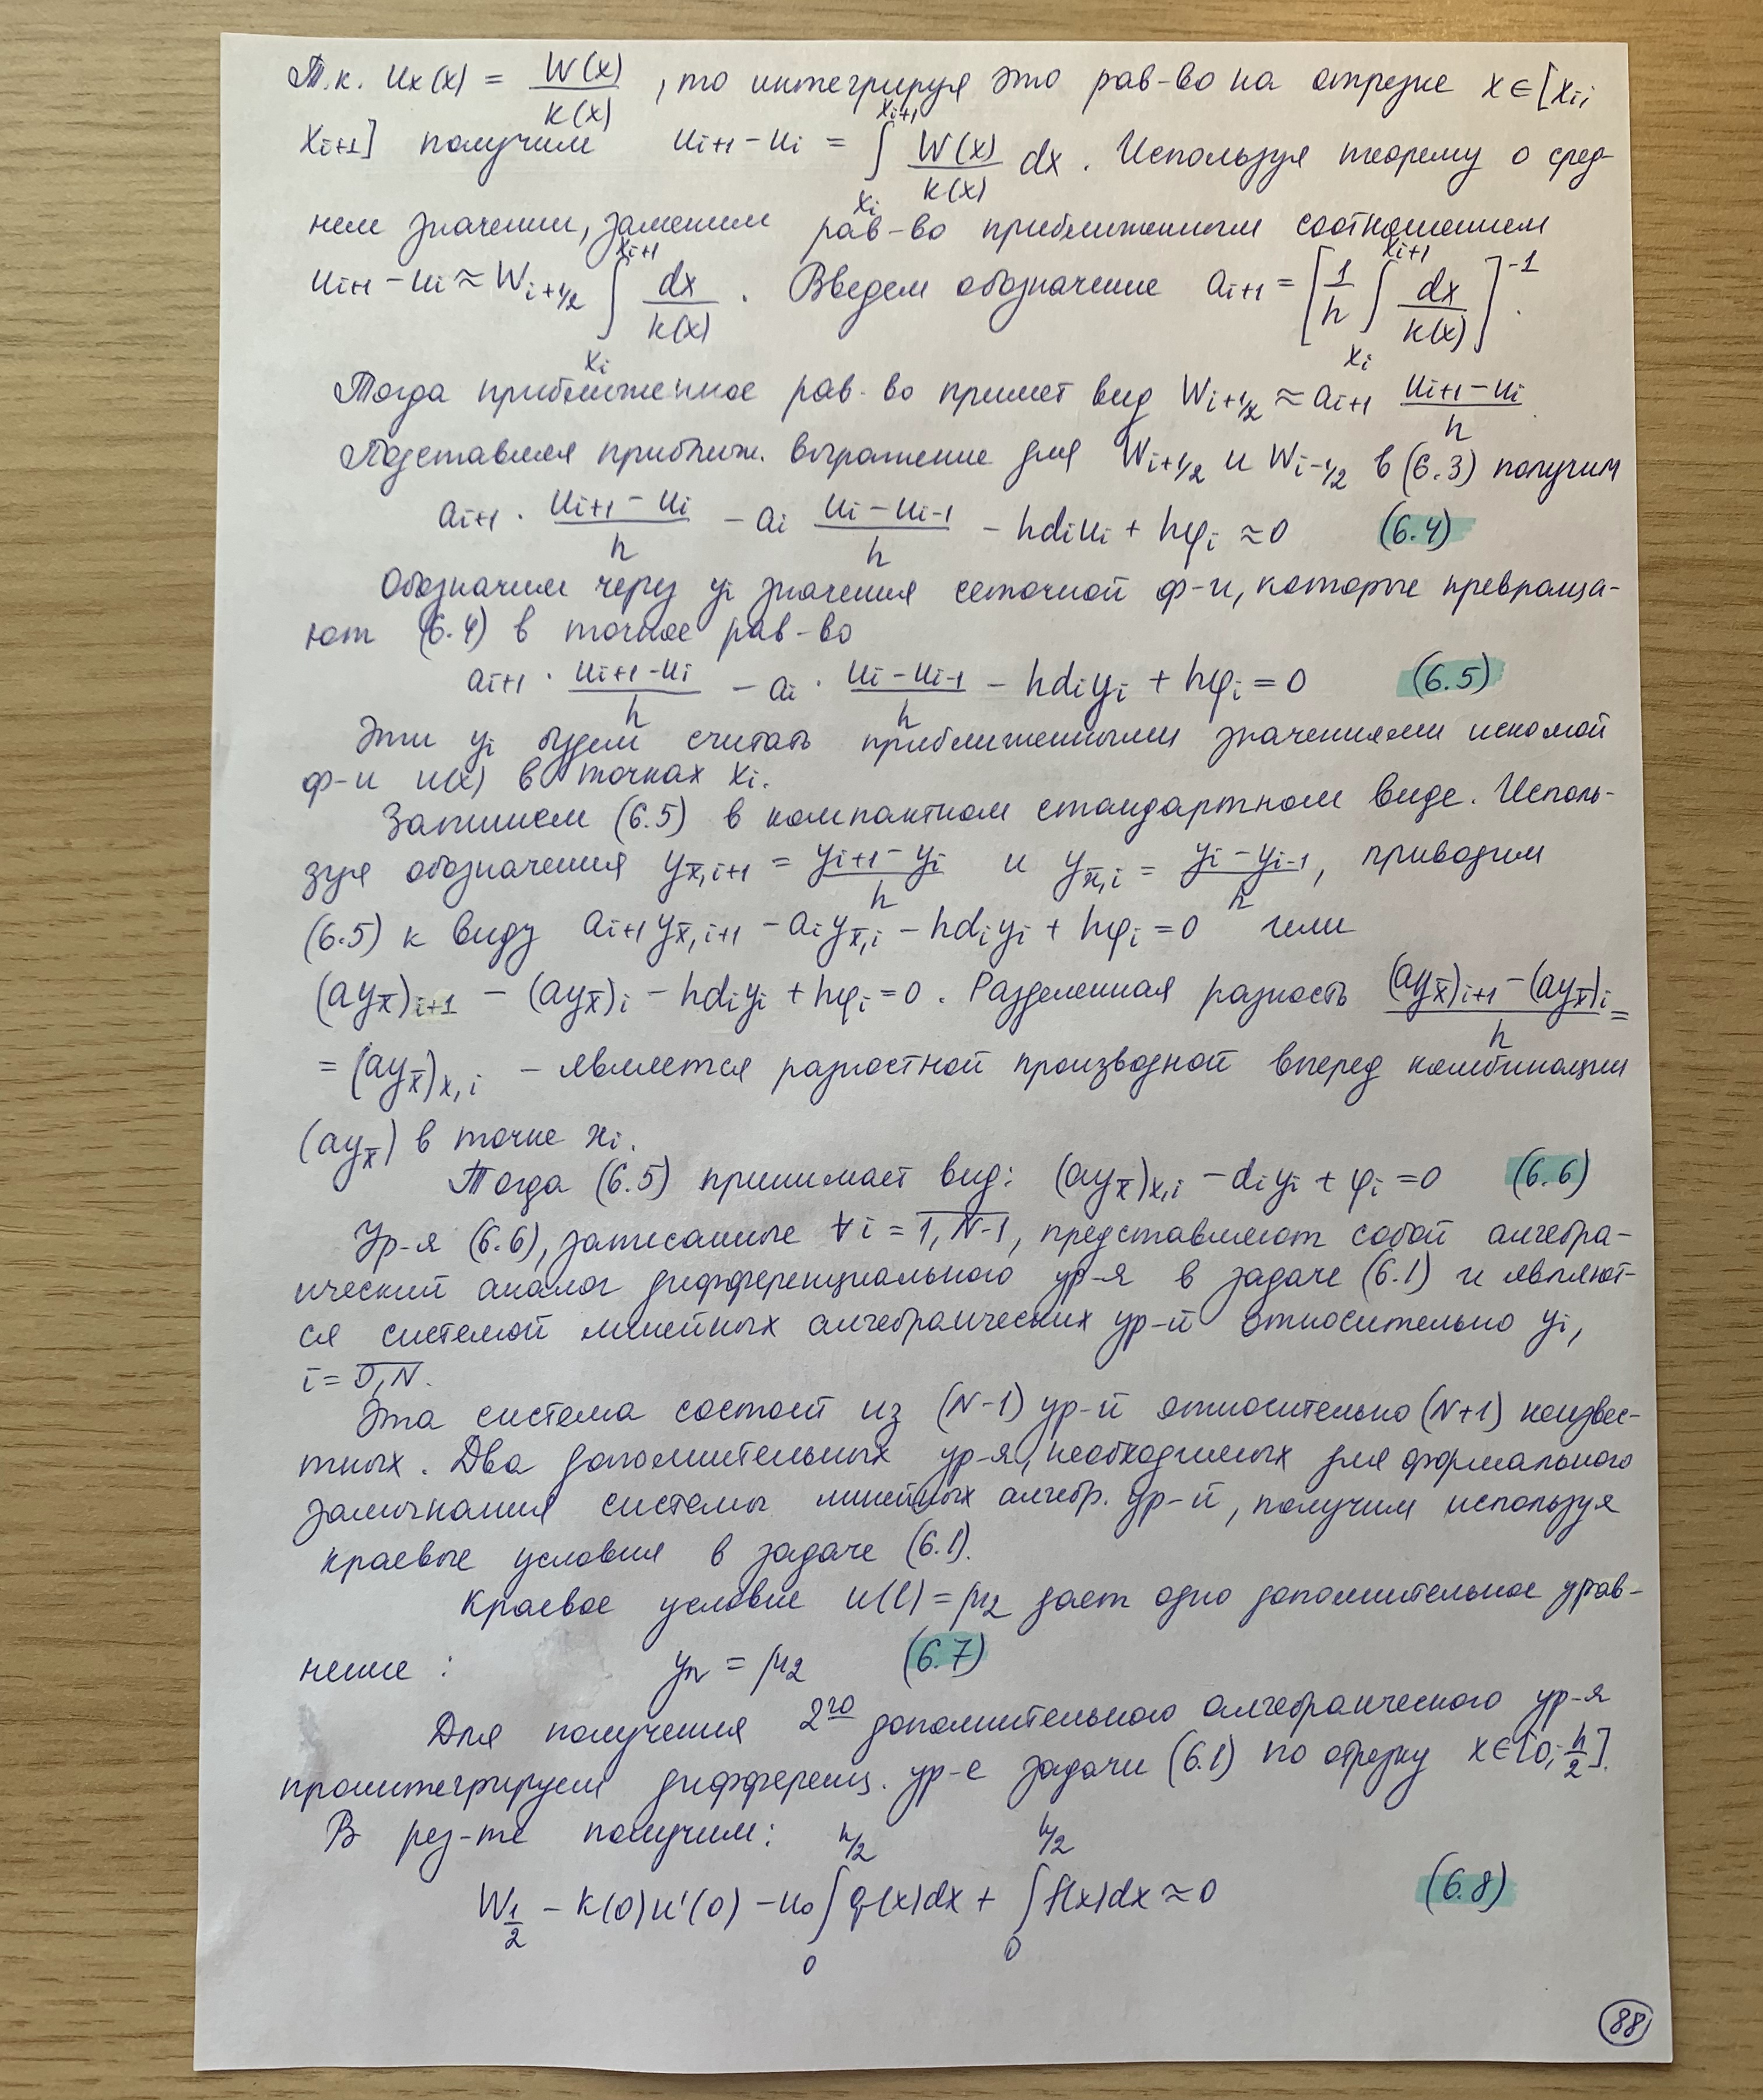 Т.к. uₓ(x) = W(x)/k(x), то интегрируя это рав-во на отрезке x∈[xᵢ;
xᵢ₊₁] получим uᵢ₊₁ − uᵢ = ∫_{xᵢ}^{xᵢ₊₁} W(x)/k(x) dx. Используя теорему о сред-
нем значении, заменим рав-во приближенным соотношением
uᵢ₊₁ − uᵢ ≈ W_{i+1/2} ∫_{xᵢ}^{xᵢ₊₁} dx/k(x). Введем обозначение aᵢ₊₁ = [1/h ∫_{xᵢ}^{xᵢ₊₁} dx/k(x)]⁻¹.
Тогда приближенное рав-во примет вид W_{i+1/2} ≈ aᵢ₊₁ (uᵢ₊₁ − uᵢ)/h.
Подставляя приближ. выражение для W_{i+1/2} и W_{i-1/2} в (6.3) получим
aᵢ₊₁ · (uᵢ₊₁ − uᵢ)/h − aᵢ (uᵢ − uᵢ₋₁)/h − hdᵢuᵢ + hφᵢ ≈ 0 (6.4)
Обозначим через yᵢ значения сеточной ф-и, которые превраща-
ют (6.4) в точное рав-во
aᵢ₊₁ · (uᵢ₊₁ − uᵢ)/h − aᵢ · (uᵢ − uᵢ₋₁)/h − hdᵢyᵢ + hφᵢ = 0 (6.5)
Эти yᵢ будем считать приближенными значениями искомой
ф-и u(x) в точках xᵢ.
Запишем (6.5) в компактном стандартном виде. Исполь-
зуя обозначения y_{x̅,i+1} = (yᵢ₊₁ − yᵢ)/h и y_{x̅,i} = (yᵢ − yᵢ₋₁)/h, приводим
(6.5) к виду aᵢ₊₁y_{x̅,i+1} − aᵢy_{x̅,i} − hdᵢyᵢ + hφᵢ = 0 или
(ay_x̅)ᵢ₊₁ − (ay_x̅)ᵢ − hdᵢyᵢ + hφᵢ = 0. Разделенная разность ((ay_x̅)ᵢ₊₁ − (ay_x̅)ᵢ)/h =
= (ay_x̅)_{x,i} – является разностной производной вперед комбинации
(ay_x̅) в точке xᵢ.
Тогда (6.5) принимает вид: (ay_x̅)_{x,i} − dᵢyᵢ + φᵢ = 0 (6.6)
Ур-я (6.6), записанные ∀ i = 1, N-1, представляют собой алгебра-
ический аналог дифференциального ур-я в задаче (6.1) и являют-
ся системой линейных алгебраических ур-й относительно yᵢ,
i = 0, N.
Эта система состоит из (N-1) ур-й относительно (N+1) неизвес-
тных. Два дополнительных ур-я, необходимых для формального
замыкания системы линейных алгебр. ур-й, получим используя
краевые условия в задаче (6.1).
Краевое условие u(l) = μ₂ дает одно дополнительное урав-
нение: y_N = μ₂ (6.7)
Для получения 2го дополнительного алгебраического ур-я
проинтегрируем дифференц. ур-е задачи (6.1) по отрезку x∈[0; h/2].
В рез-те получим:
W_{1/2} − k(0)u'(0) − u₀ ∫_0^{h/2} q(x)dx + ∫_0^{h/2} f(x)dx ≈ 0 (6.8)
88